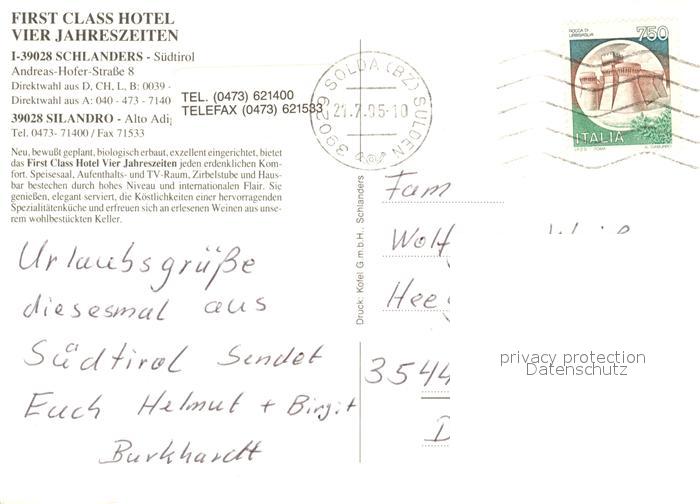 FIRST CLASS HOTEL
VIER JAHRESZEITEN
I-39028 SCHLANDERS - Südtirol
Andreas-Hofer-Straße 8
Direktwahl aus D, CH, L, B: 0039 -
Direktwahl aus A: 040 - 473 - 7140
TEL. (0473) 621400
TELEFAX (0473) 621533
39028 SILANDRO - Alto Adi
Tel. 0473- 71400 / Fax 71533
Neu, bewußt geplant, biologisch erbaut, exzellent eingerichtet, bietet
das First Class Hotel Vier Jahreszeiten jeden erdenklichen Kom-
fort. Speisesaal, Aufenthalts- und TV-Raum, Zirbelstube und Haus-
bar bestechen durch hohes Niveau und internationalen Flair. Sie
genießen, elegant serviert, die Köstlichkeiten einer hervorragenden
Spezialitätenküche und erfreuen sich an erlesenen Weinen aus unse-
rem wohlbestückten Keller.
39029 SOLDA (BZ) SULDEN
21.7.95-10
ROCCA DI
URBISAGLIA
750
ITALIA
Urlaubsgrüße
diesesmal aus
Südtirol sendet
Euch Helmut + Birgit
Burkhardt
Druck: Kofel G.m.b.H., Schlanders
Fam
Wolf
Hee
3544
D
privacy protection
Datenschutz